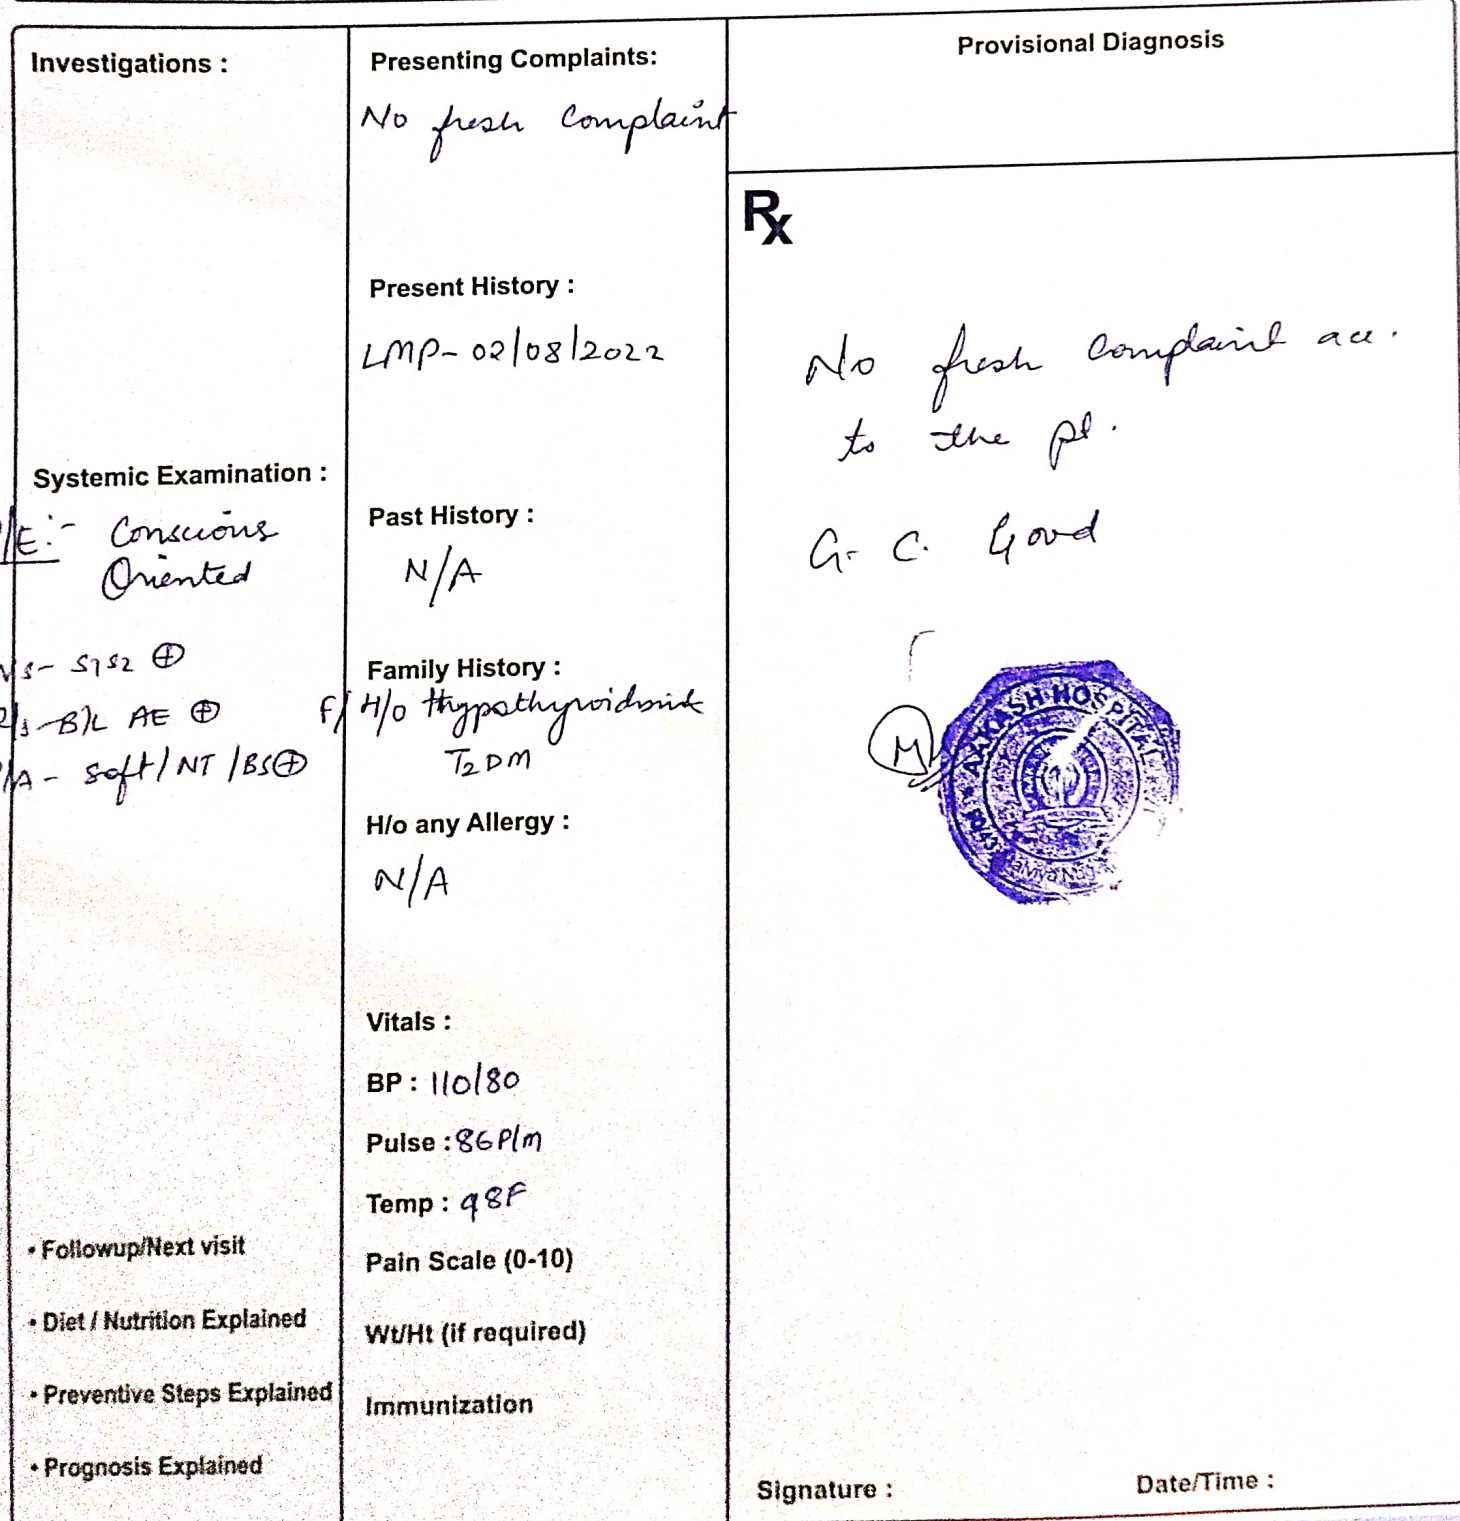 Investigations :
Systemic Examination :
/E:- Conscious
Oriented
S1S2 ⊕
B/L AE ⊕
/A - Soft/NT/BS⊕
• Followup/Next visit
• Diet / Nutrition Explained
• Preventive Steps Explained
• Prognosis Explained
Presenting Complaints:
No fresh Complaint
Present History :
LMP- 02/08/2022
Past History :
N/A
Family History :
F/H/o
T2DM
H/o any Allergy :
N/A
Vitals :
BP : 110/80
Pulse : 86P/m
Temp : 98F
Pain Scale (0-10)
Wt/Ht (if required)
Immunization
Provisional Diagnosis
Rx
No fresh Complaint acc.
to the pt.
G. C. Good
M
AAKASH HOSPITAL
Malviya Nagar
Signature :
Date/Time :